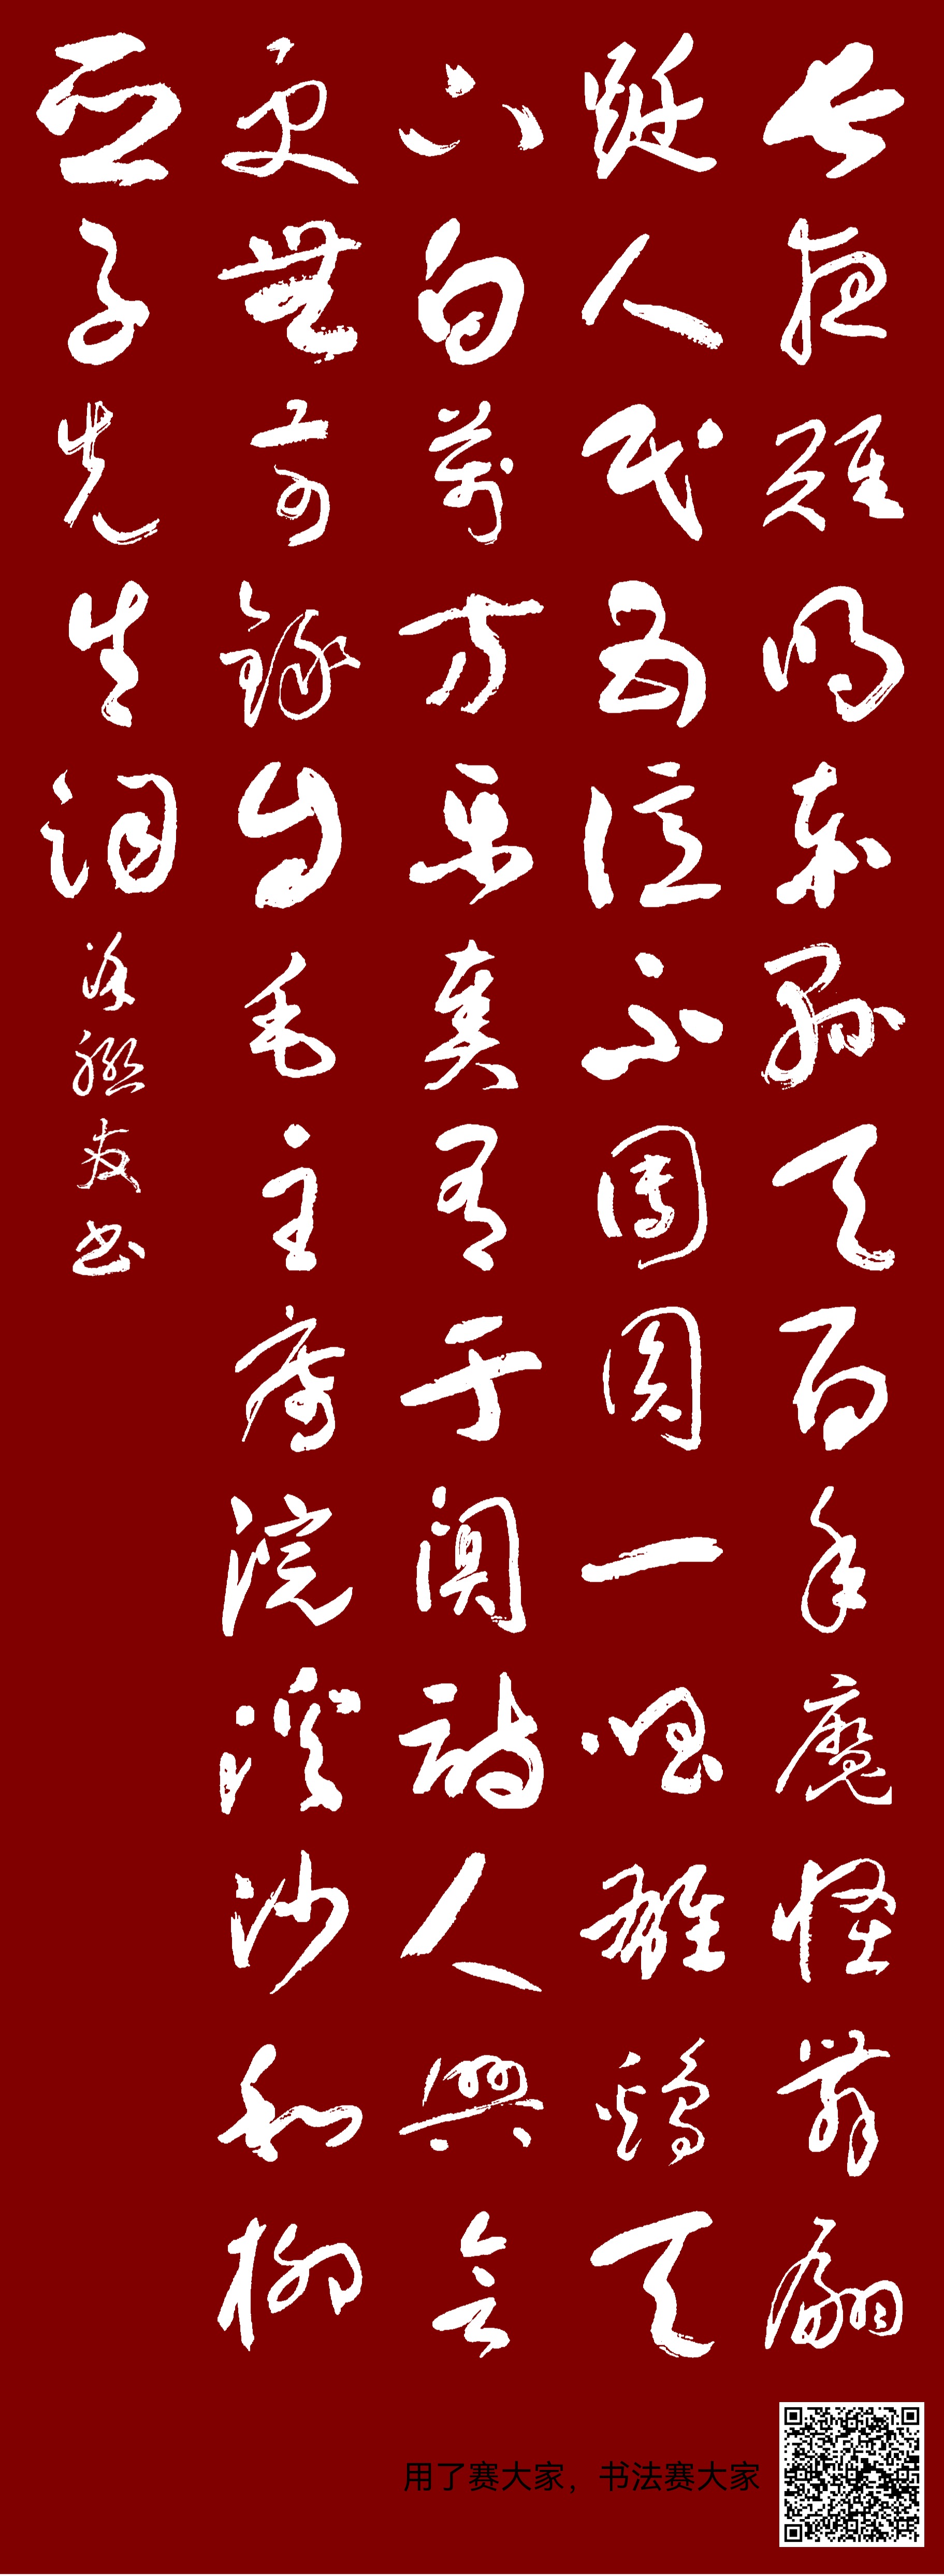 长夜難明赤縣天百年魔怪舞翩
跹人民五億不團圆一唱雄鷄天
下白萬方乐奏有于阗詩人興会
更無前錄自毛主席浣溪沙和柳
亚子先生词 友书
用了赛大家，书法赛大家